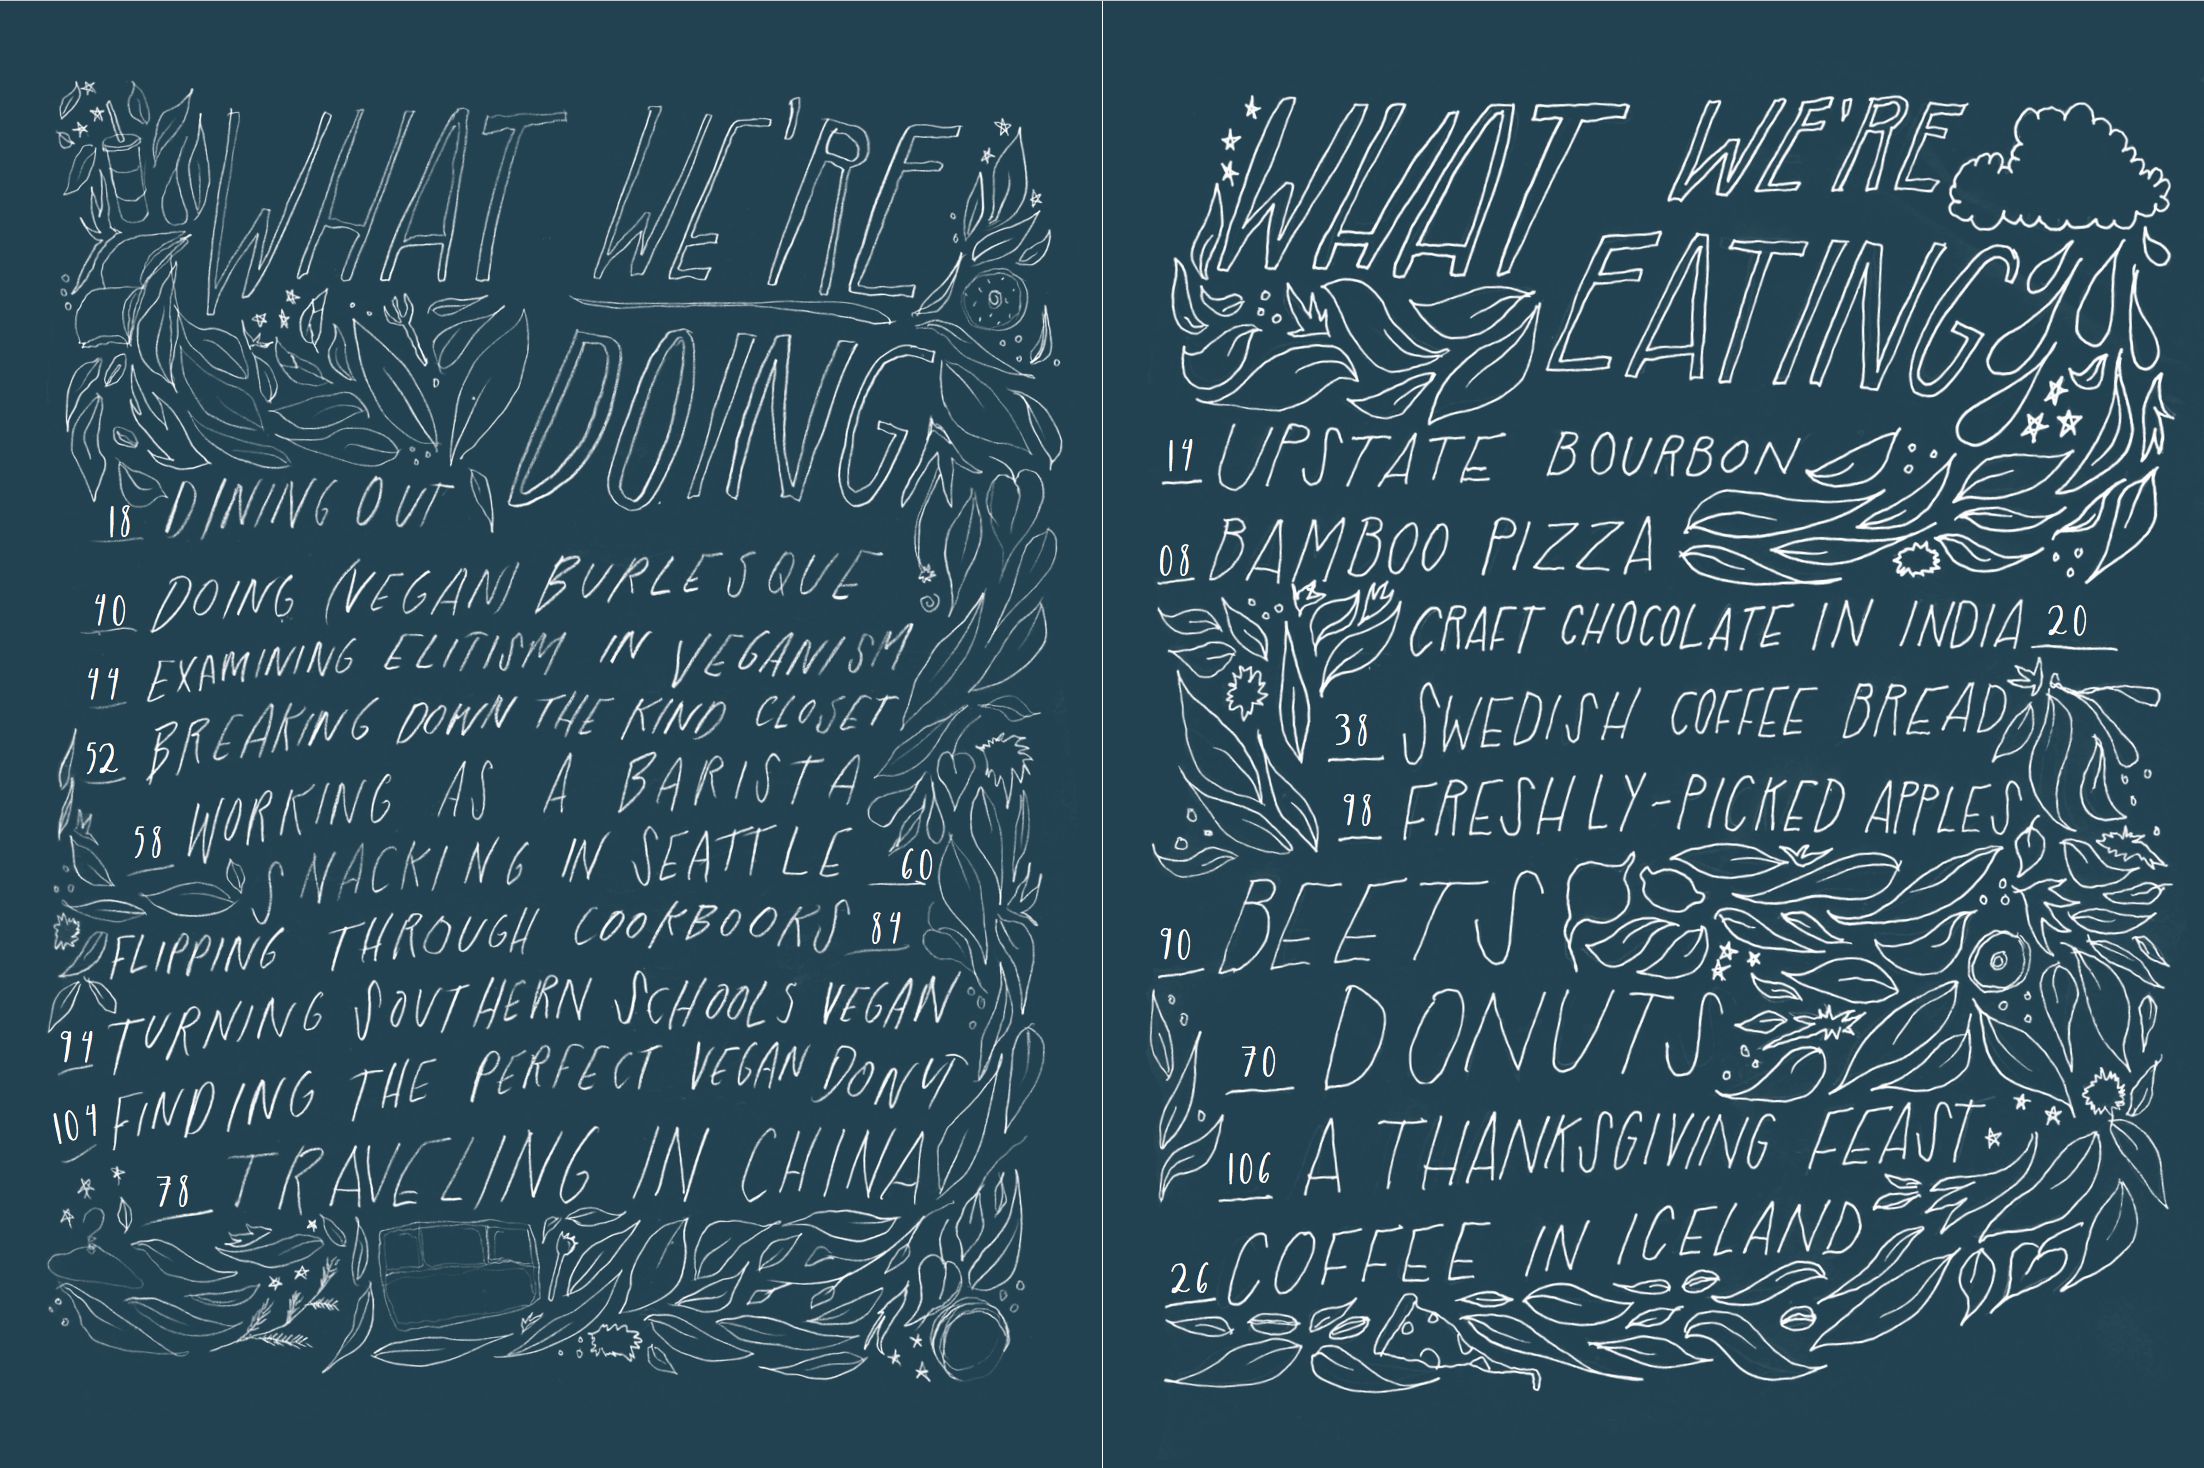 WHAT WE'RE
DOING
18 DINING OUT
40 DOING (VEGAN) BURLESQUE
44 EXAMINING ELITISM IN VEGANISM
52 BREAKING DOWN THE KIND CLOSET
58 WORKING AS A BARISTA
SNACKING IN SEATTLE 60
FLIPPING THROUGH COOKBOOKS 84
94 TURNING SOUTHERN SCHOOLS VEGAN
104 FINDING THE PERFECT VEGAN DONUT
78 TRAVELING IN CHINA
WHAT WE'RE
EATING
14 UPSTATE BOURBON
08 BAMBOO PIZZA
CRAFT CHOCOLATE IN INDIA 20
38 SWEDISH COFFEE BREAD
98 FRESHLY-PICKED APPLES
90 BEETS
70 DONUTS
106 A THANKSGIVING FEAST
26 COFFEE IN ICELAND